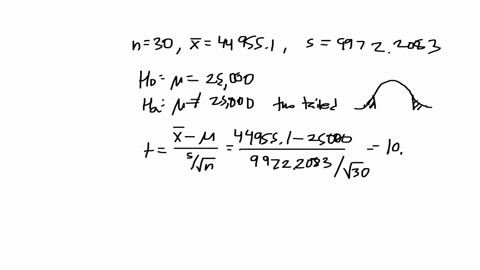 n=30, x̄=44955.1, s=9972.2083
H₀ = μ = 25,000
Hₐ: μ ≠ 25,000 two tailed
t = (x̄ - μ)/(s/√n) = (44955.1 - 25000)/(9972.2083/√30) = 10.